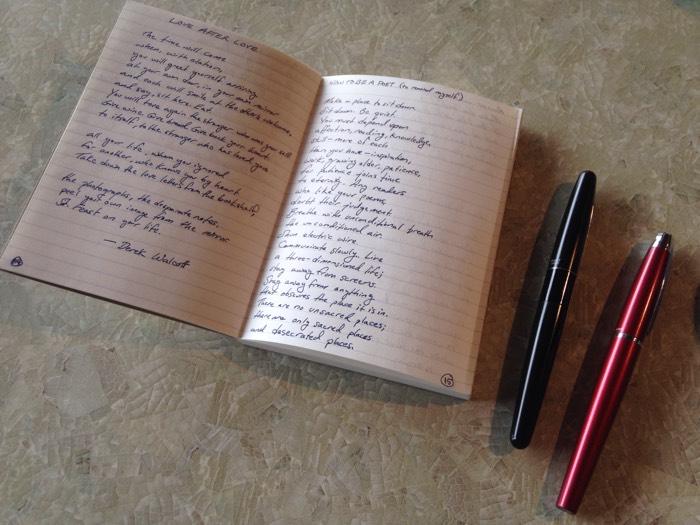 LOVE AFTER LOVE
The time will come
when, with elation,
you will greet yourself arriving
at your own door, in your own mirror
and each will smile at the other's welcome,
and say, sit here. Eat.
You will love again the stranger who was your self.
Give wine. Give bread. Give back your heart
to itself, to the stranger who has loved you
all your life, whom you ignored
for another, who knows you by heart.
Take down the love letters from the bookshelf,
the photographs, the desperate notes,
peel your own image from the mirror.
Sit. Feast on your life.
— Derek Walcott
HOW TO BE A POET (to remind myself)
Make a place to sit down.
Sit down. Be quiet.
You must depend upon
affection, reading, knowledge,
skill – more of each
than you have – inspiration,
work, growing older, patience,
for patience joins time
to eternity. Any readers
who like your poems,
doubt their judgement.
Breathe with unconditional breath
the unconditioned air.
Shun electric wire.
Communicate slowly. Live
a three-dimensional life;
stay away from screens.
Stay away from anything
that obscures the place it is in.
There are no unsacred places;
there are only sacred places
and desecrated places.
15